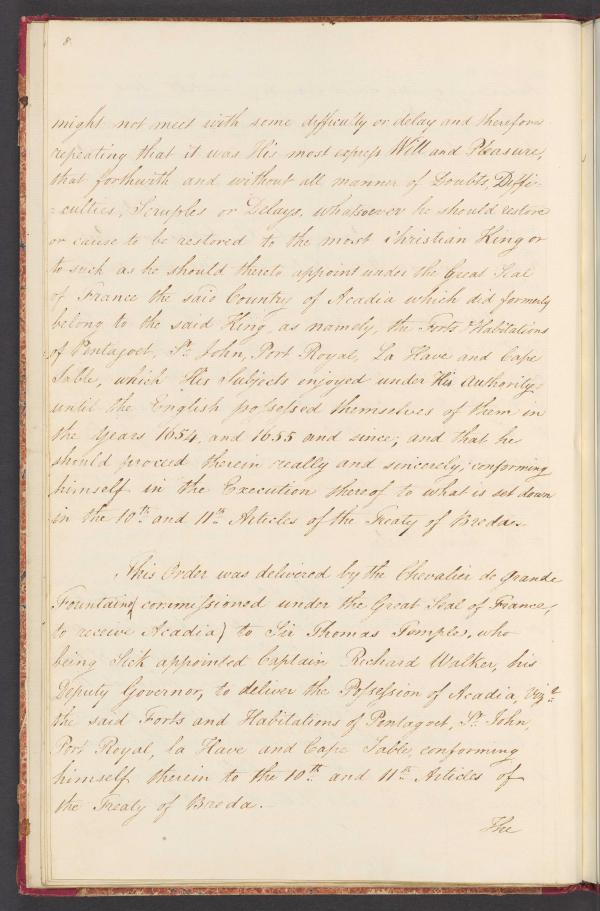 8.
might not meet with some difficulty or delay and therefore
repeating that it was His most express Will and Pleasure,
that forthwith and without all manner of Doubts, Diffi-
=culties, Scruples or Delays, whatsoever he should restore
or cause to be restored to the most Christian King or
to such as he should thereto appoint under the Great Seal
of France the said Country of Acadia which did formerly
belong to the said King, as namely, the Forts & Habitations
of Pentagoet, St. John, Port Royal, La Have and Cape
Sable, which His Subjects enjoyed under His Authority,
until the English possessed themselves of them in
the years 1654, and 1655 and since; and that he
should proceed therein really and sincerely, conforming
himself in the Execution thereof to what is set down
in the 10th and 11th Articles of the Treaty of Breda.
This Order was delivered by the Chevalier de Grande
Fountaine (commissioned under the Great Seal of France,
to receive Acadia) to Sir Thomas Temple, who
being Sick appointed Captain Richard Walker, his
Deputy Governor, to deliver the Possession of Acadia, Vizt.
the said Forts and Habitations of Pentagoet, St. John,
Port Royal, la Have and Cape Sable, conforming
himself therein to the 10th and 11th Articles of
the Treaty of Breda.
The